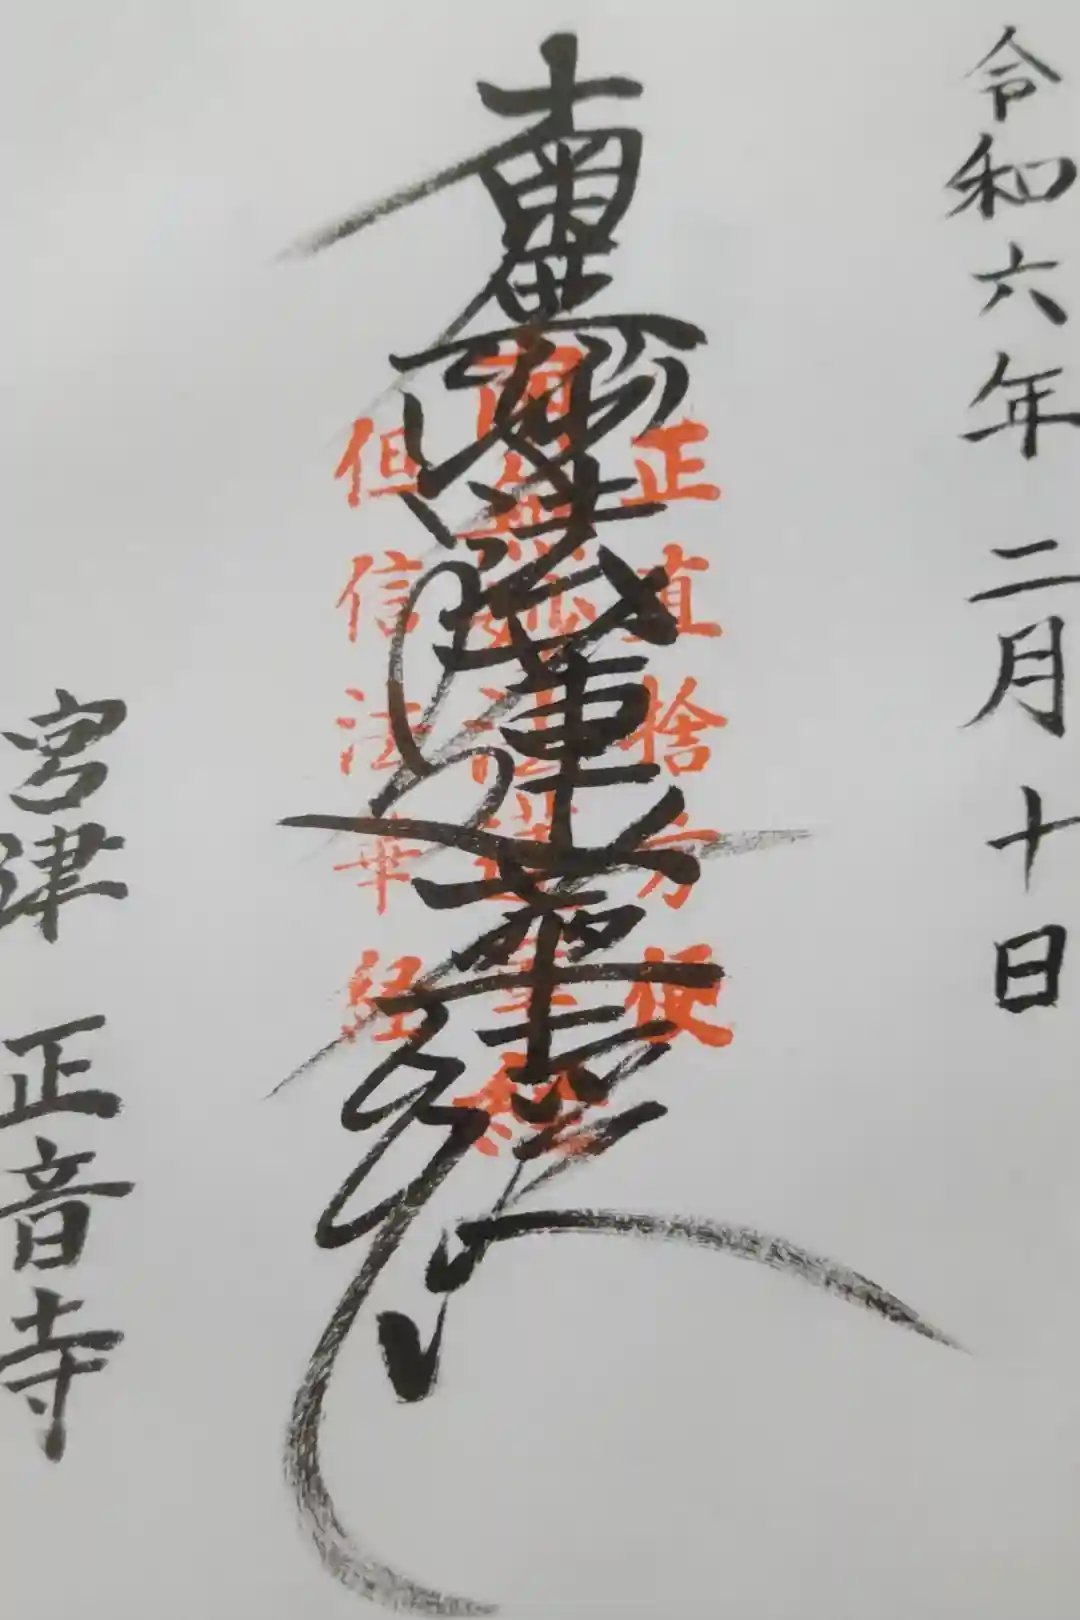 令和六年二月十日
正直捨方便
南無妙法蓮華経
南無妙法蓮華経
但信法華経
宮津 正音寺